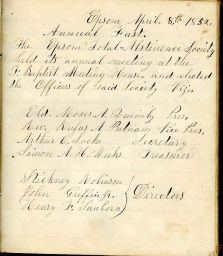 Epsom April 8th 1852.
Annual Fast.
The Epsom Total Abstinence Society
held its annual meeting at the
F. Baptist Meeting House and elected
the Officers of said Society Viz.
Eld. Moses A. Quimby Pres.
Rev. Rufus A. Putnam Vice Pres.
Arthur C. Locke Secretary
Simon A. H. Treasurer
Stickney Robinson
John Griffin jr. Directors
Henry F. Sanborn